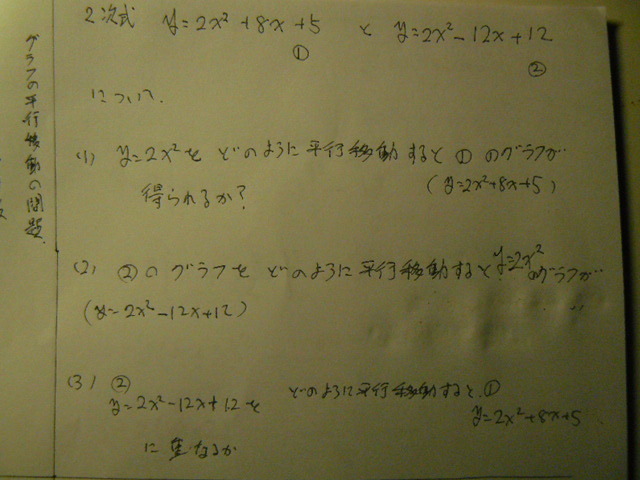 グラフの平行移動の問題.
2次式 y=2x²+8x+5 と y=2x²-12x+12
① ②
について.
(1) y=2x²を どのように平行移動すると ① のグラフが
得られるか? (y=2x²+8x+5)
(2) ②のグラフを どのように平行移動すると y=2x²のグラフが 〃
(y=2x²-12x+12)
(3) ②
y=2x²-12x+12を どのように平行移動すると、①
y=2x²+8x+5
に重なるか